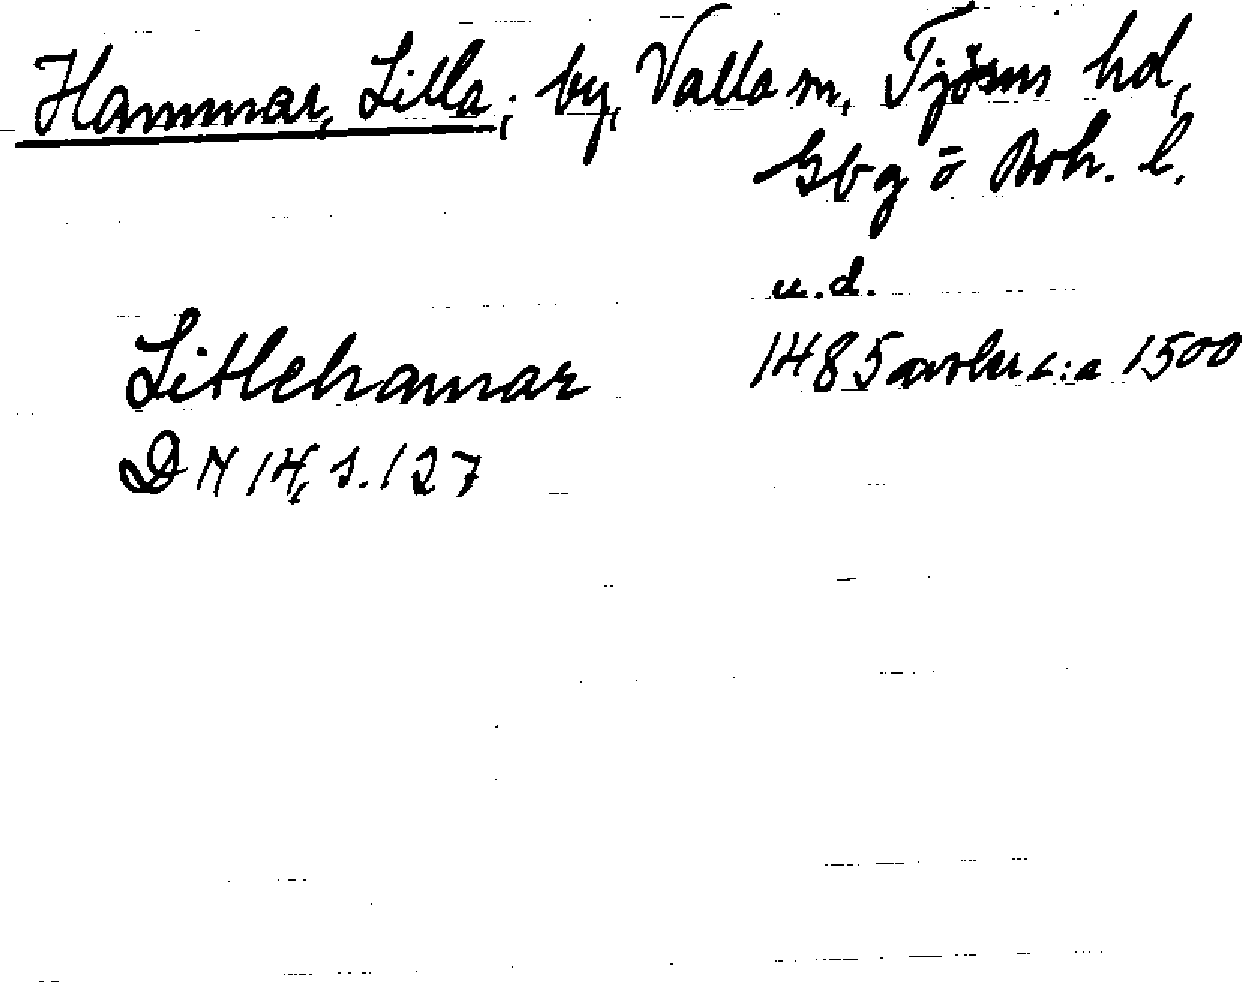 Hammar, Lilla; by, Valla sn, Tjörns hd,
Gbg o Boh. l.
u.d.
Litlehamar 1485 avskr c:a 1500
DN 14, s. 127